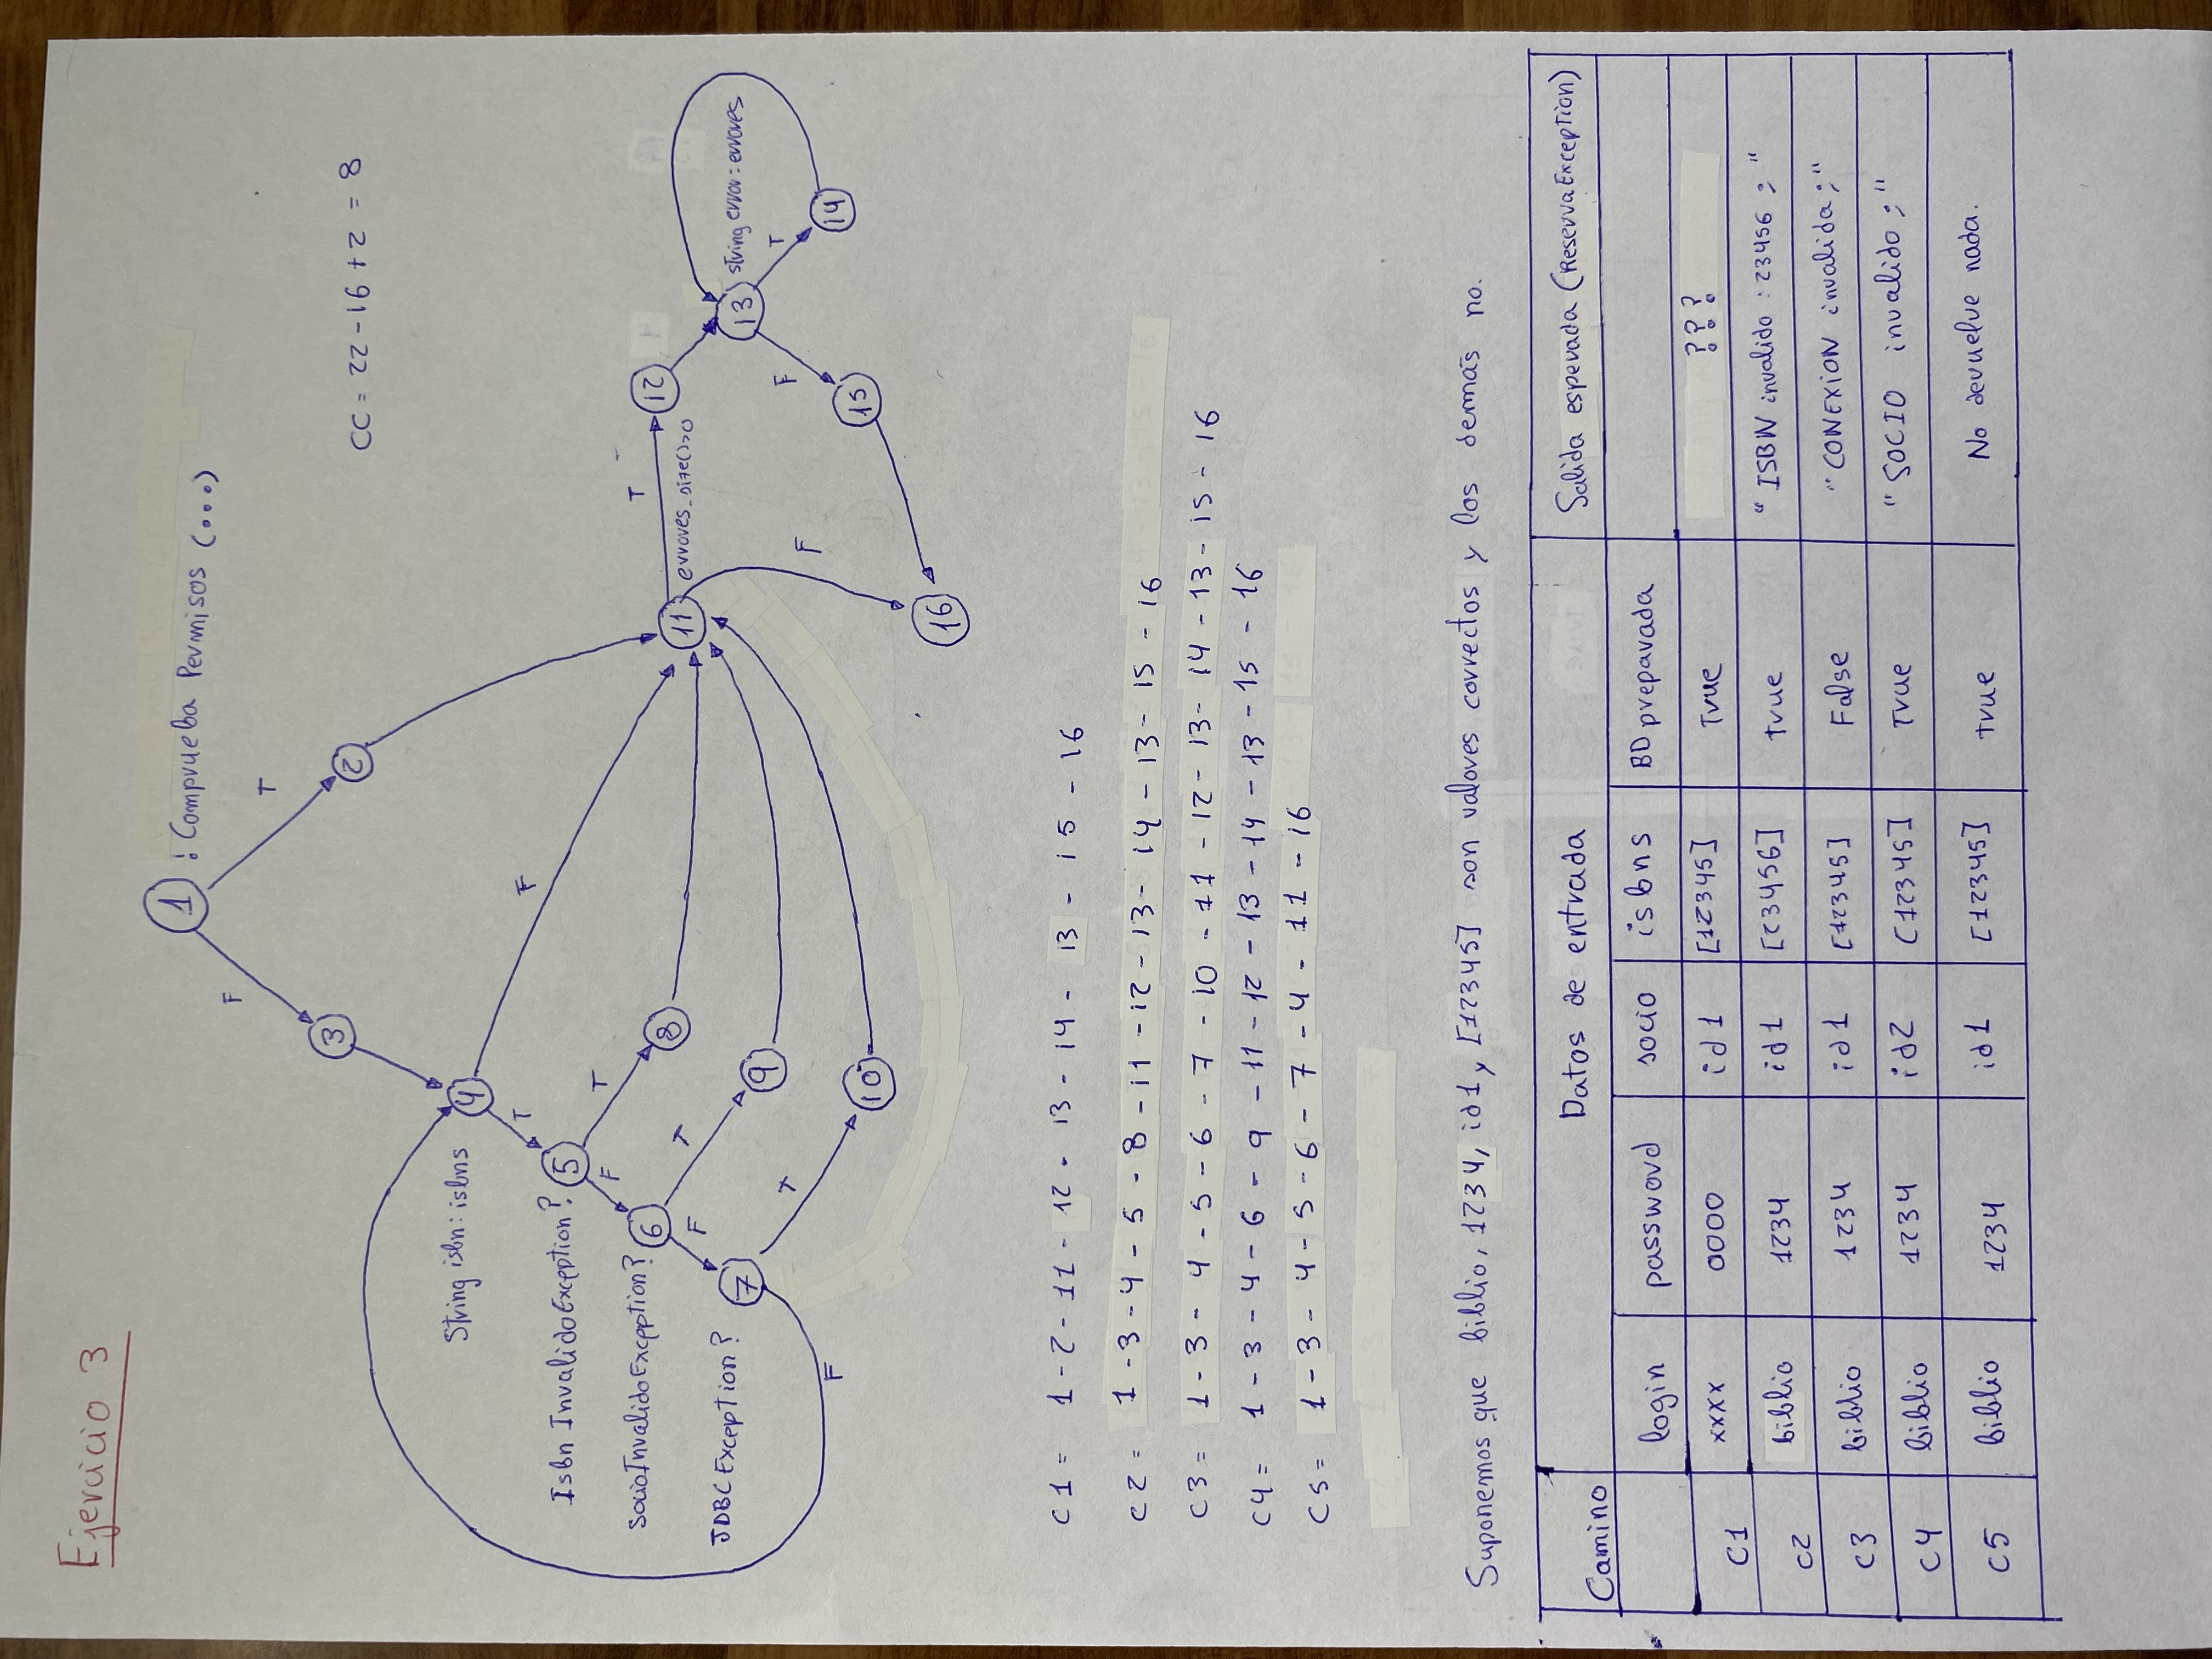 Ejercicio 3
1 ! Comprueba Permisos (...)
F T
3 2
CC = 22 - 16 + 2 = 8
String isbn: isbns 4
T F
Isbn InvalidoException? 5
F T
SocioInvalidoExcepption? 6 8
T 12
11 errores.size()>0
F T
JDBC Exception? 7 9
13 string error: errores
F T
T F
F 10
15 14
16
C1 = 1 - 2 - 11 - 12 - 13 - 14 - 13 - 15 - 16
C2 = 1 - 3 - 4 - 5 - 8 - 11 - 12 - 13 - 14 - 13 - 15 - 16
C3 = 1 - 3 - 4 - 5 - 6 - 7 - 10 - 11 - 12 - 13 - 14 - 13 - 15 - 16
C4 = 1 - 3 - 4 - 6 - 9 - 11 - 12 - 13 - 14 - 13 - 15 - 16
C5 = 1 - 3 - 4 - 5 - 6 - 7 - 4 - 11 - 16
Suponemos que biblio, 1234, id1 y [12345] son valores correctos y los demás no.
Camino Datos de entrada Salida esperada (ReservaException)
login password socio isbns BD preparada
C1 xxxx 0000 id1 [12345] True ???
C2 biblio 1234 id1 [23456] true "ISBN invalido : 23456 ; "
C3 biblio 1234 id1 [12345] False "CONEXION invalida ; "
C4 biblio 1234 id2 [12345] True "SOCIO invalido ; "
C5 biblio 1234 id1 [12345] true No devuelve nada.